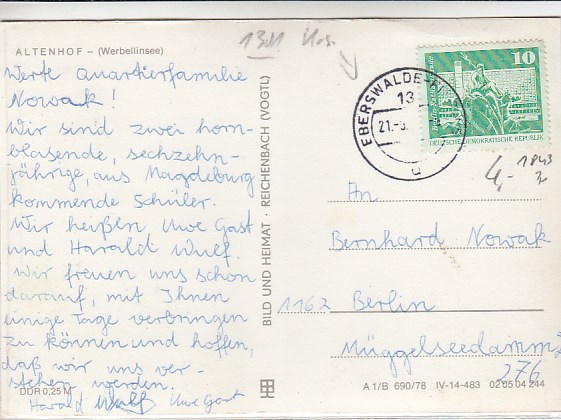 ALTENHOF – (Werbellinsee)
Werte Quartierfamilie
Nowak!
Wir sind zwei horn-
blasende, sechzehn-
jährige, aus Magdeburg
kommende Schüler.
Wir heißen, Uwe Gast
und Harald Wulf.
Wir freuen uns schon
darauf, mit Ihnen
einige Tage verbringen
zu können und hoffen,
daß wir uns ver-
stehen werden.
Harald Wulf Uwe Gast
DDR 0,25 M
BILD UND HEIMAT · REICHENBACH (VOGTL)
EBERSWALDE-FI
13
21.-
10
DEUTSCHE DEMOKRATISCHE REPUBLIK
4,-
1843
An
Bernhard Nowak
1162 Berlin
Müggelseedamm
276
A 1/B 690/78 IV-14-483 02 05 04 244